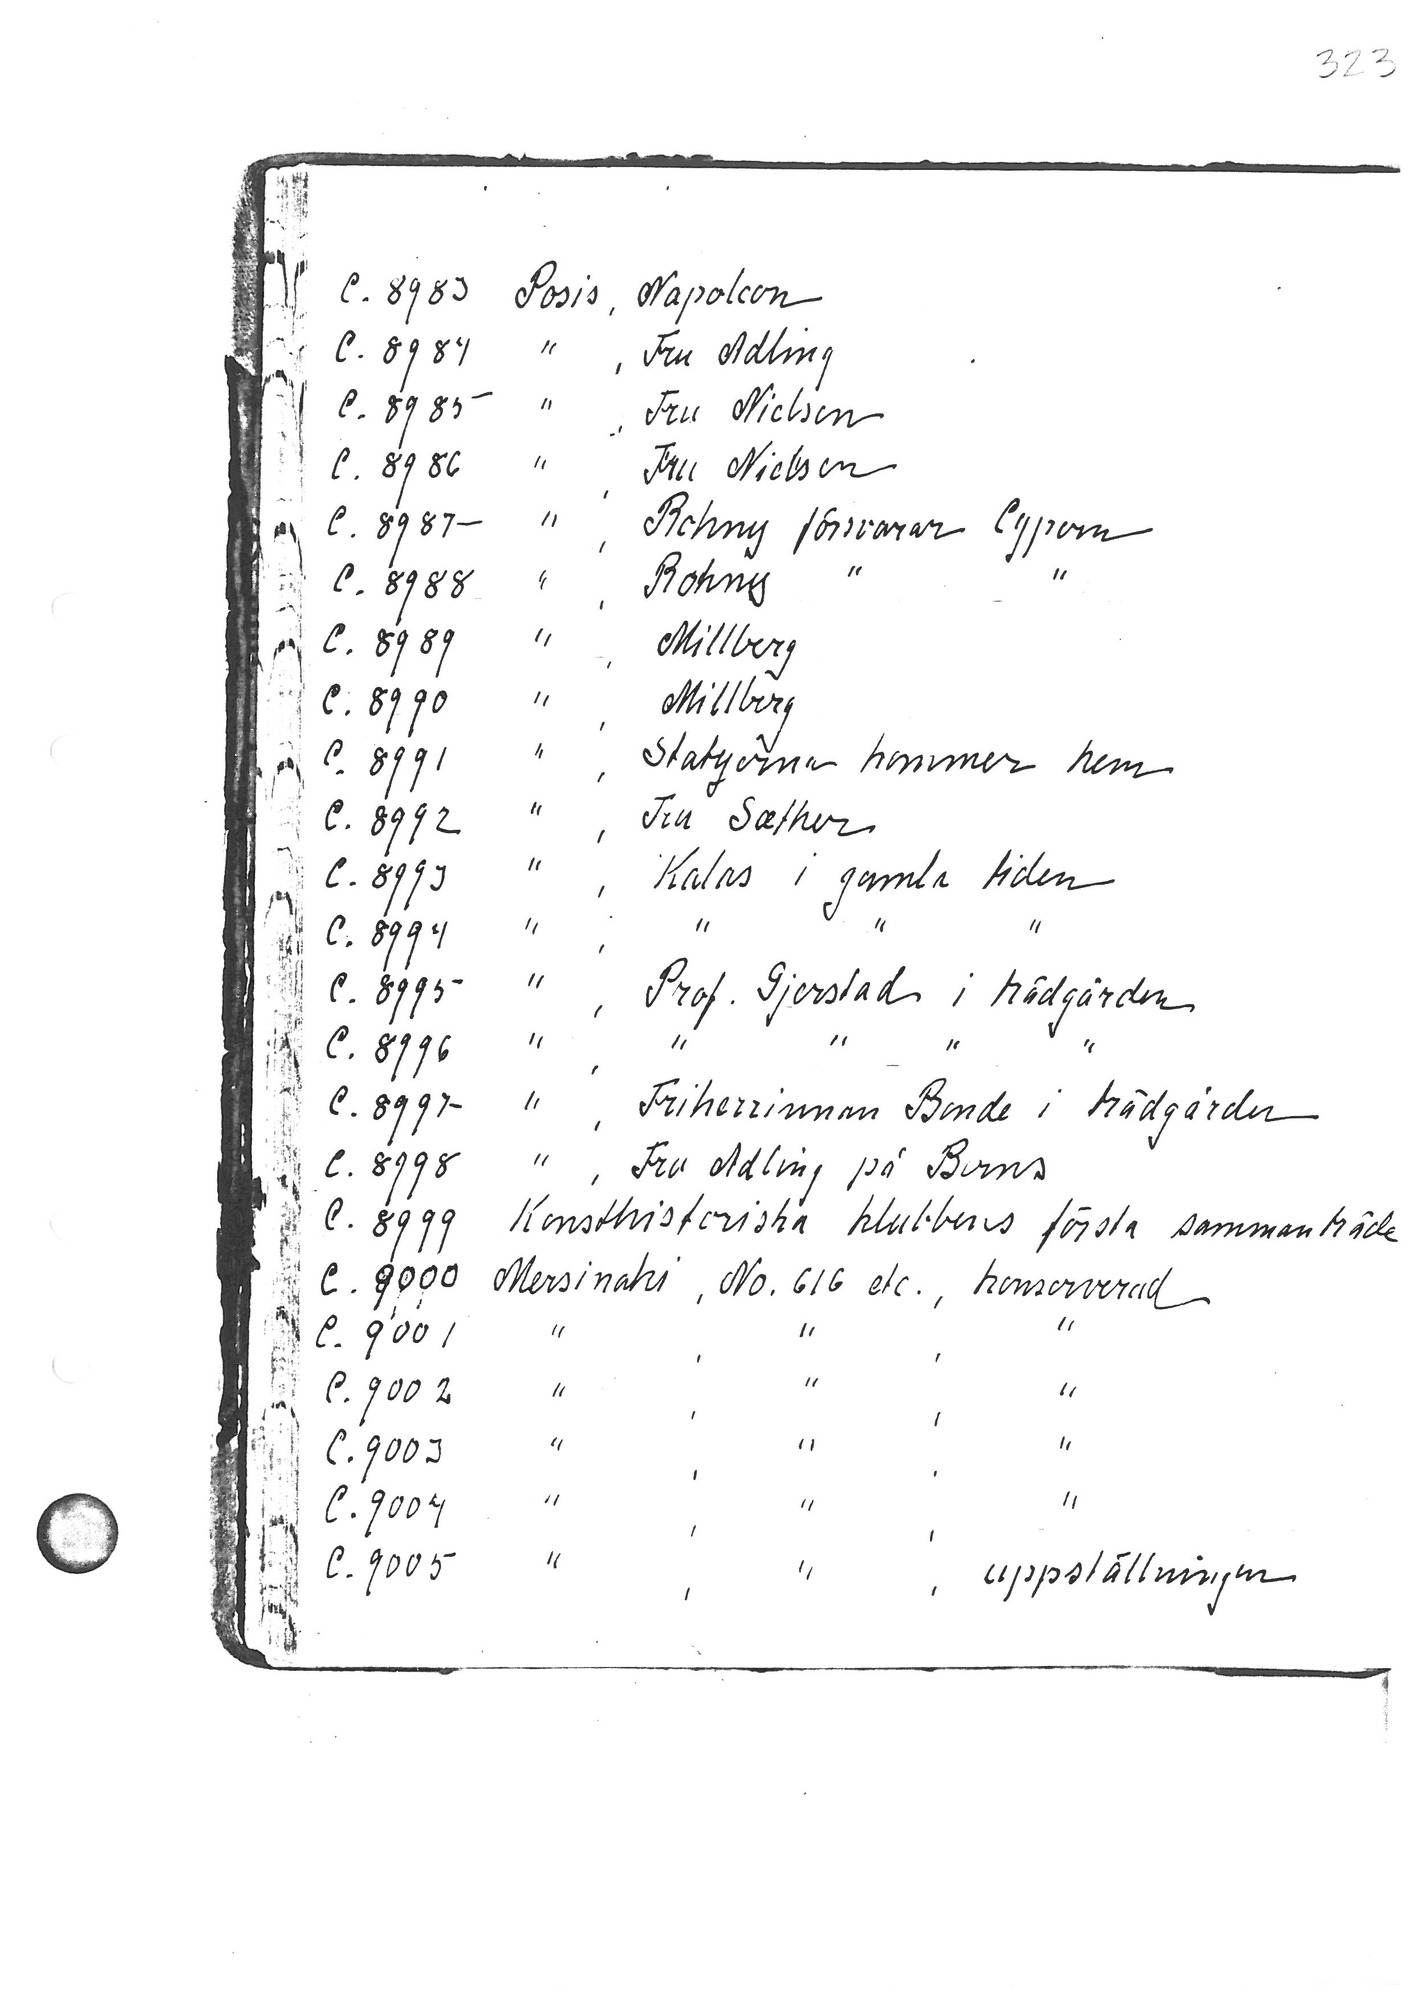 323
C. 8983 Posis, Napoleon
C. 8984 " , Fru Adling
C. 8985 " , Fru Nielsen
C. 8986 " , Fru Nielsen
C. 8987 " , försvarar Cypern
C. 8988 " , " "
C. 8989 " , Millberg
C. 8990 " , Millberg
C. 8991 " , Statyerna kommer hem
C. 8992 " , Fru Sæther
C. 8993 " , Kalas i gamla tiden
C. 8994 " , " " "
C. 8995 " , Prof. Gjerstad i trädgården
C. 8996 " , " " " "
C. 8997 " , Friherrinnan Bonde i trädgården
C. 8998 " , Fru Adling på Berns
C. 8999 Konsthistoriska klubbens första sammanträde
C. 9000 Mersinaki, No. 616 etc., konserverad
C. 9001 " , " , "
C. 9002 " , " , "
C. 9003 " , " , "
C. 9004 " , " , "
C. 9005 " , " , uppställningen